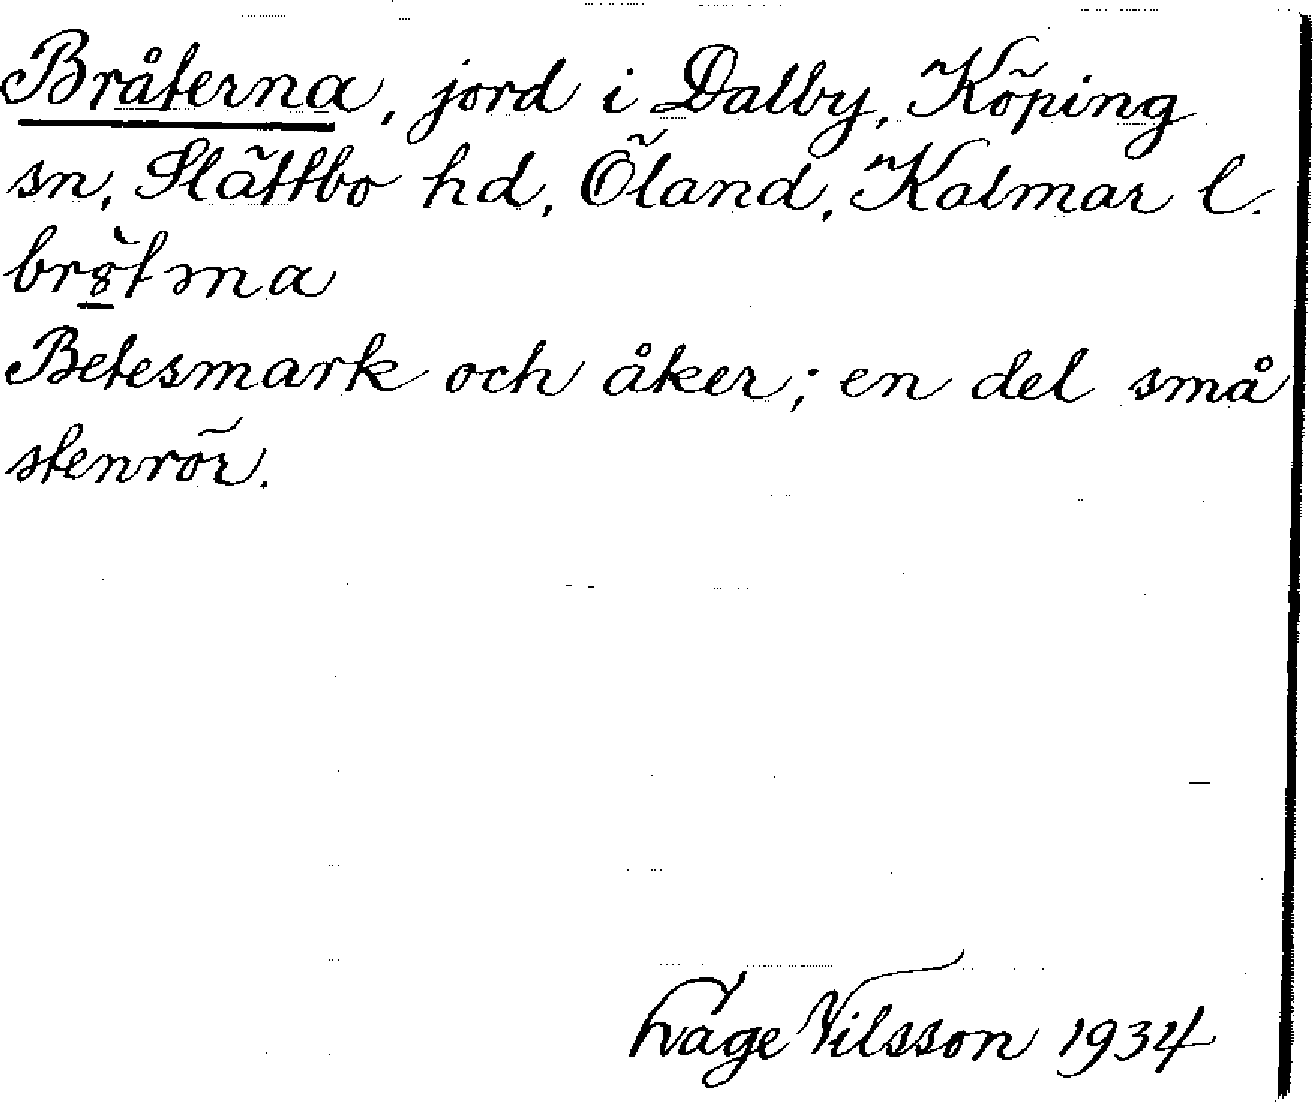 Bråterna, jord i Dalby, Köping
sn, Slättbo hd, Öland, Kalmar l.
Betesmark och åker; en del små
stenrör.
Nilsson 1934